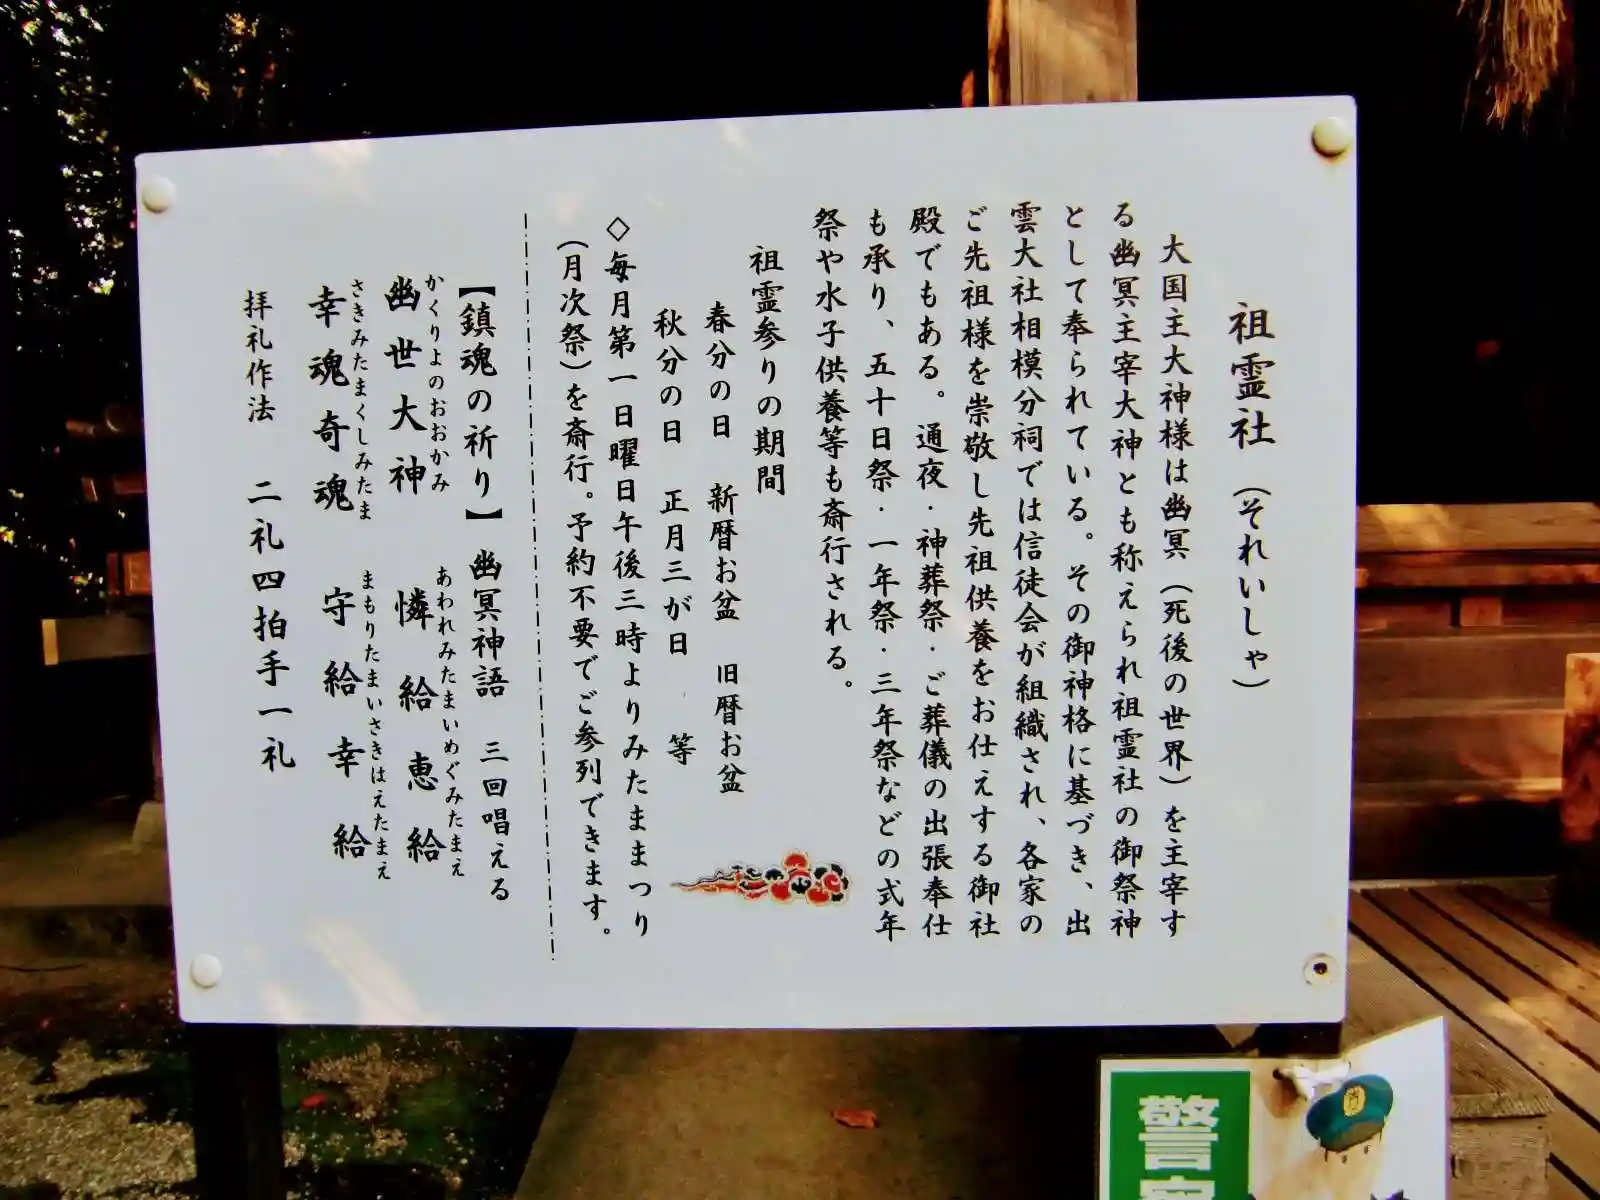 祖霊社（それいしゃ）
大国主大神様は幽冥（死後の世界）を主宰す
る幽冥主宰大神とも称えられ祖霊社の御祭神
として奉られている。その御神格に基づき、出
雲大社相模分祠では信徒会が組織され、各家の
ご先祖様を崇敬し先祖供養をお仕えする御社
殿でもある。通夜・神葬祭・ご葬儀の出張奉仕
も承り、五十日祭・一年祭・三年祭などの式年
祭や水子供養等も斎行される。
祖霊参りの期間
春分の日 新暦お盆 旧暦お盆
秋分の日 正月三が日 等
◇毎月第一日曜日午後三時よりみたままつり
（月次祭）を斎行。予約不要でご参列できます。
【鎮魂の祈り】幽冥神語 三回唱える
かくりよのおおかみ あわれみたまいめぐみたまえ
幽世大神 憐給恵給
さきみたまくしみたま まもりたまいさきはえたまえ
幸魂奇魂 守給幸給
拝礼作法 二礼四拍手一礼
警